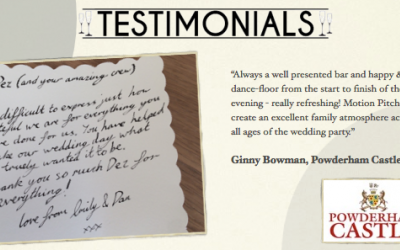 TESTIMONIALS
Dez (and your amazing crew)
difficult to express just how
we are for everything you
done for us. You have helped
our wedding day what
truely wanted it to be.
you so much Dez for
everything!
love from Emily & Dan
xxx
"Always a well presented bar and happy &
dance-floor from the start to finish of the
evening - really refreshing! Motion Pitch
create an excellent family atmosphere ac
all ages of the wedding party."
Ginny Bowman, Powderham Castle
POWDERHA
CASTL